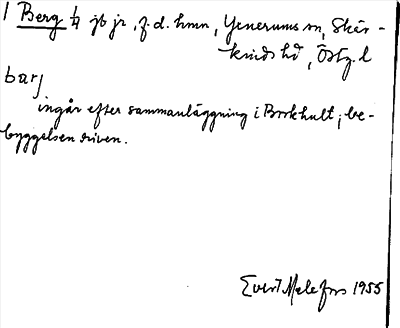 1 Berg 1/4 jb jr, f.d. hmn, Yxnerums sn, Skär-
kinds hd, Östg. l
barj
ingår efter sammanläggning i Borkhult; be-
byggelsen riven.
Evert Melefors 1955